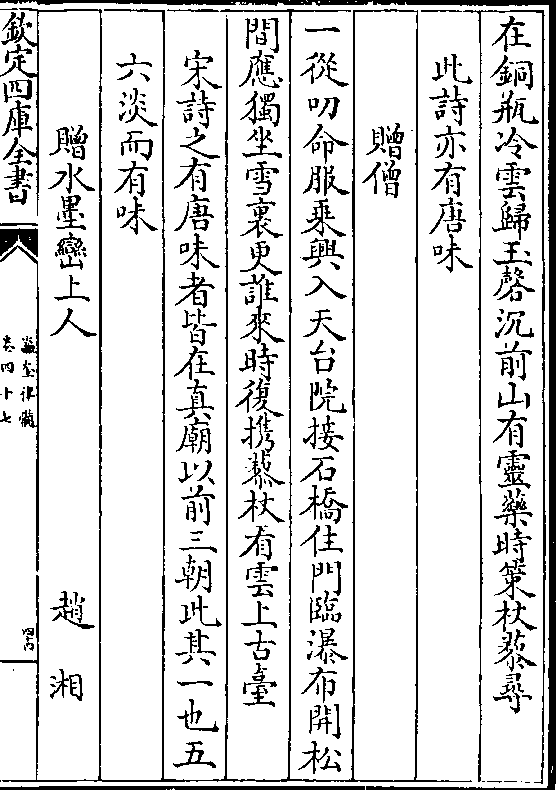 在銅瓶冷雲歸玉磬沉前山有靈藥時策杖藜尋
此詩亦有唐味
贈僧
一從叨命服乘興入天台院接石橋住門臨瀑布開松
間應獨坐雪裏更誰來時復携藜杖看雲上古臺
宋詩之有唐味者皆在真廟以前三朝此其一也五
六淡而有味
贈水墨巒上人 趙湘
欽定四庫全書
瀛奎律髓
卷四十七